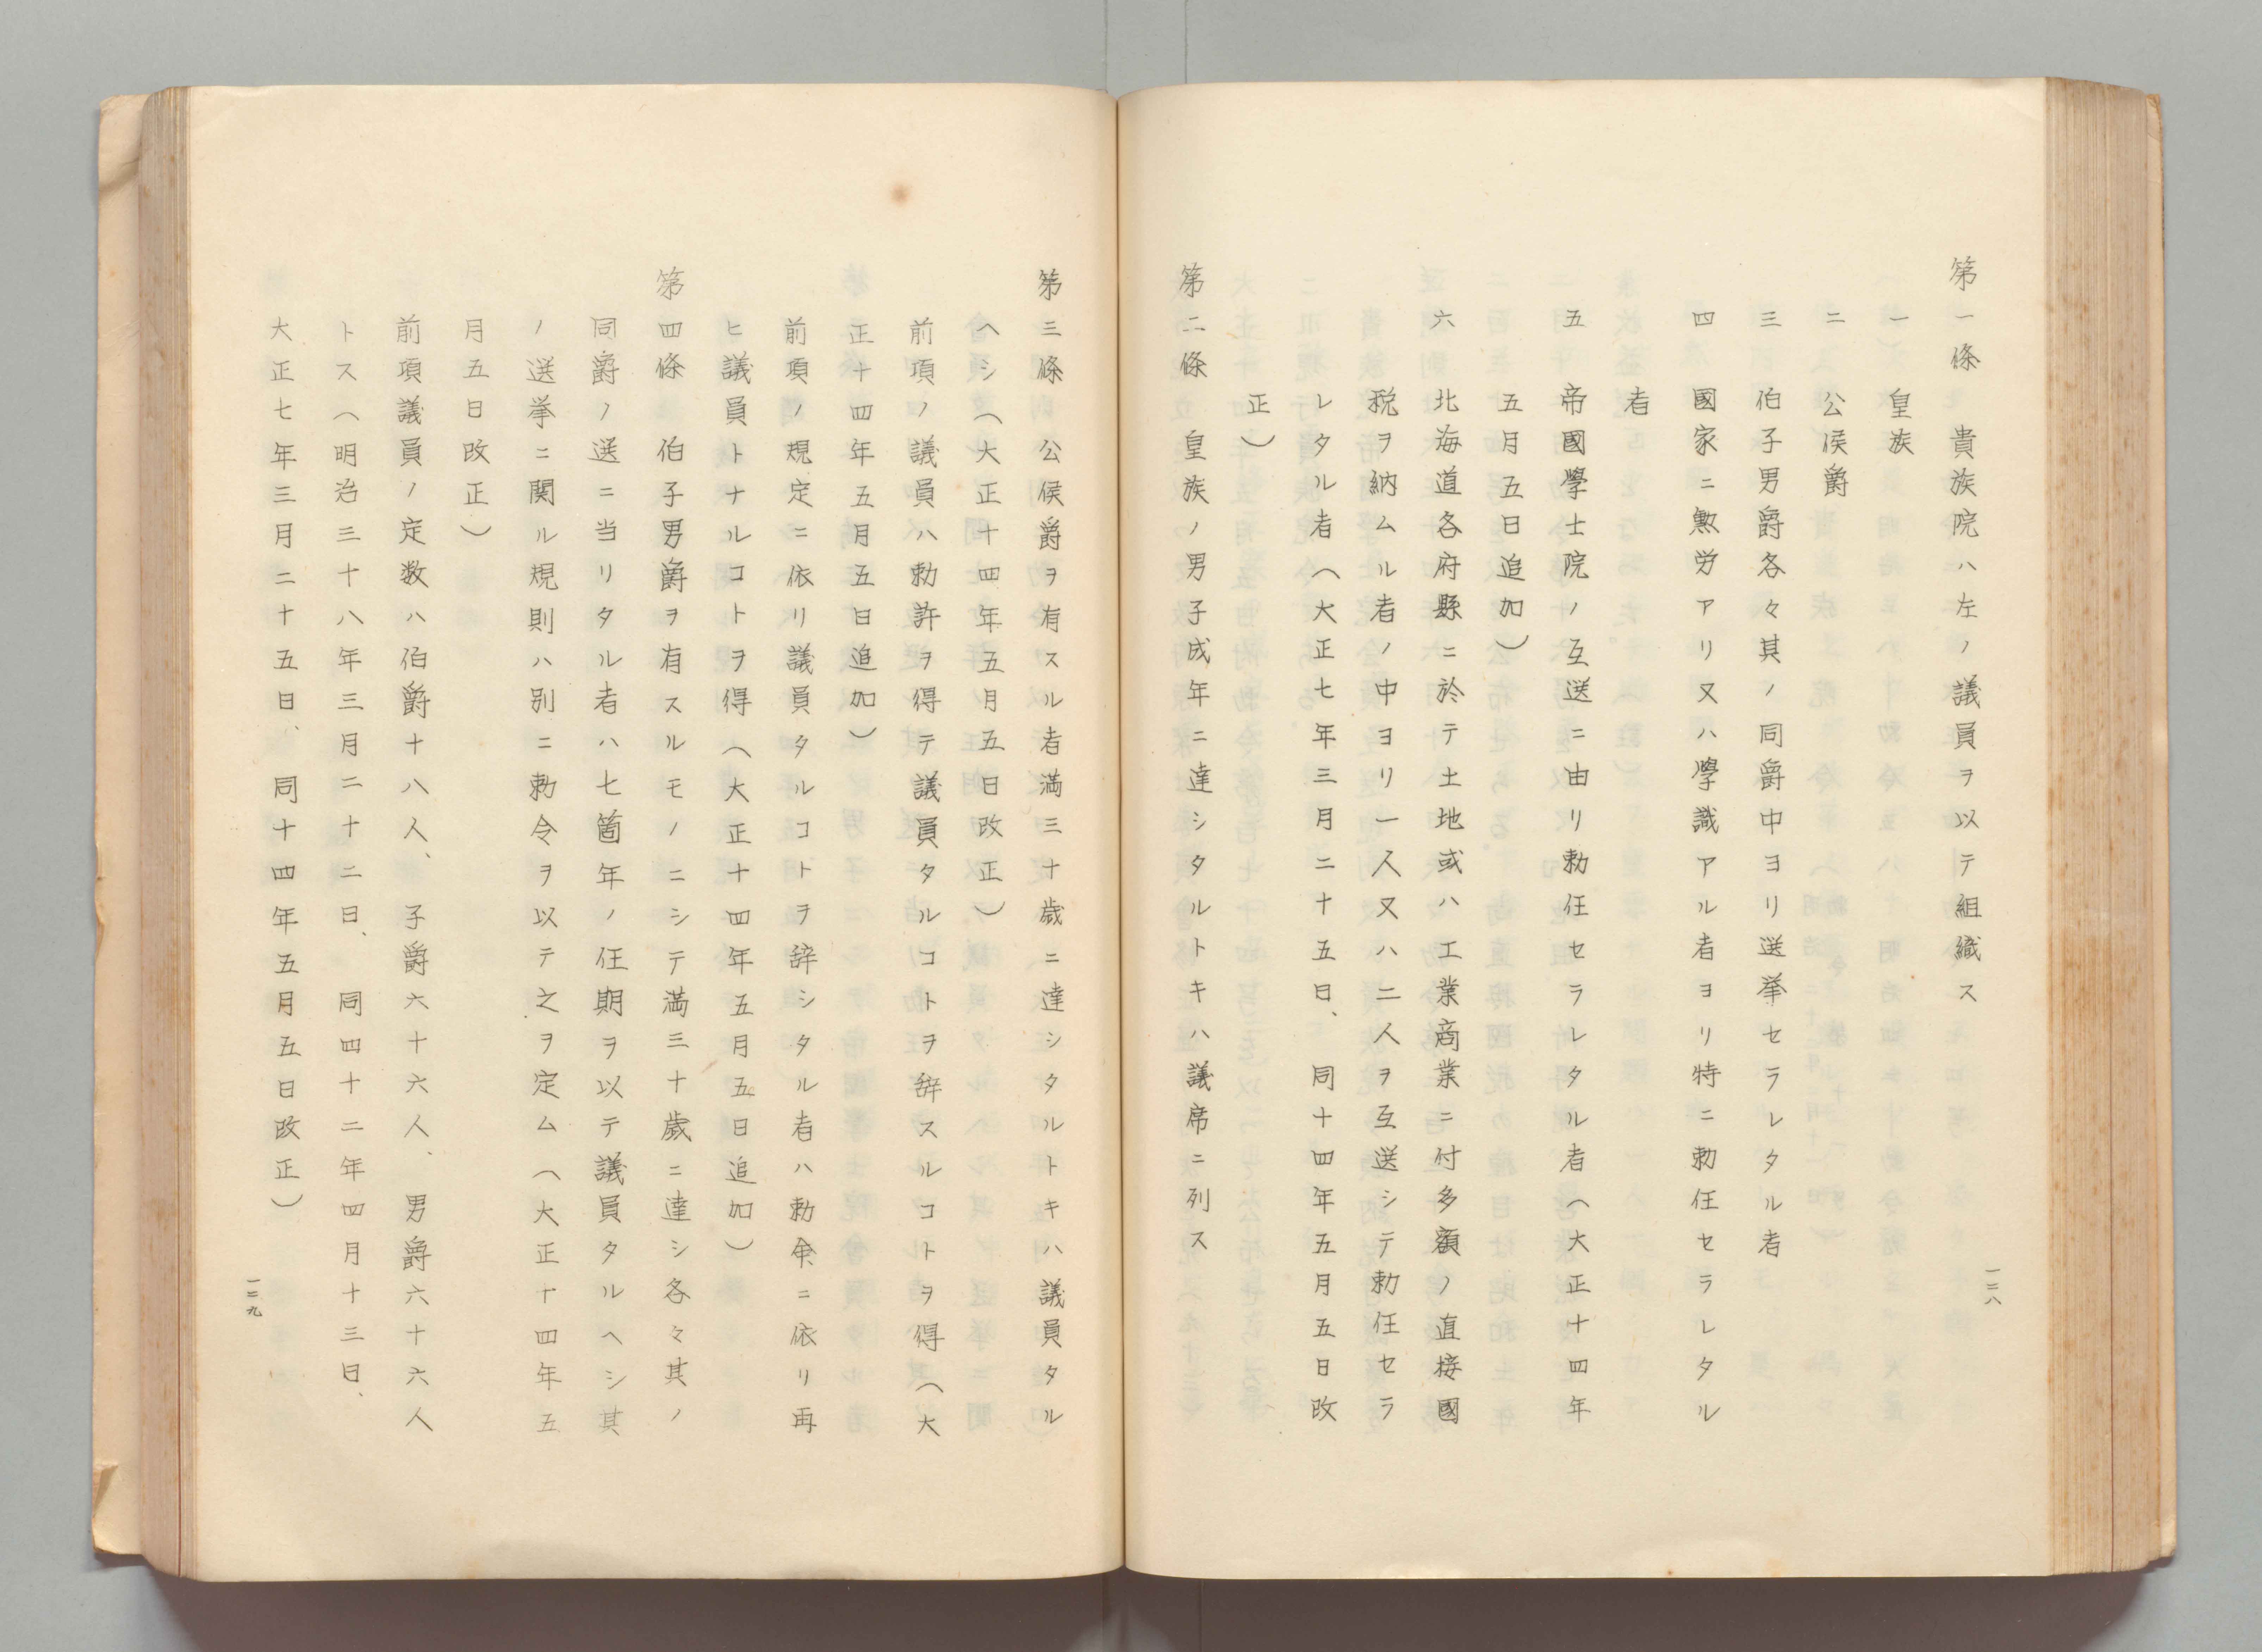 第一條　貴族院ハ左ノ議員ヲ以テ組織ス
一　皇族
二　公侯爵
三　伯子男爵各々其ノ同爵中ヨリ選挙セラレタル者
四　國家ニ勲労アリ又ハ學識アル者ヨリ特ニ勅任セラレタル
者
五　帝國學士院ノ互選ニ由リ勅任セラレタル者（大正十四年
五月五日追加）
六　北海道各府縣ニ於テ土地或ハ工業商業ニ付多額ノ直接國
税ヲ納ムル者ノ中ヨリ一人又ハ二人ヲ互選シテ勅任セラ
レタル者（大正七年三月二十五日、同十四年五月五日改
正）
第二條　皇族ノ男子成年ニ達シタルトキハ議席ニ列ス
一二八
第三條　公侯爵ヲ有スル者満三十歳ニ達シタルトキハ議員タル
ヘシ（大正十四年五月五日改正）
前項ノ議員ハ勅許ヲ得テ議員タルコトヲ辞スルコトヲ得（大
正十四年五月五日追加）
前項ノ規定ニ依リ議員タルコトヲ辞シタル者ハ勅命ニ依リ再
ヒ議員トナルコトヲ得（大正十四年五月五日追加）
第四條　伯子男爵ヲ有スルモノニシテ満三十歳ニ達シ各々其ノ
同爵ノ選ニ当リタル者ハ七箇年ノ任期ヲ以テ議員タルヘシ其
ノ選挙ニ関ル規則ハ別ニ勅令ヲ以テ之ヲ定ム（大正十四年五
月五日改正）
前項議員ノ定数ハ伯爵十八人、子爵六十六人、男爵六十六人
トス（明治三十八年三月二十二日、同四十二年四月十三日、
大正七年三月二十五日、同十四年五月五日改正）
一二九